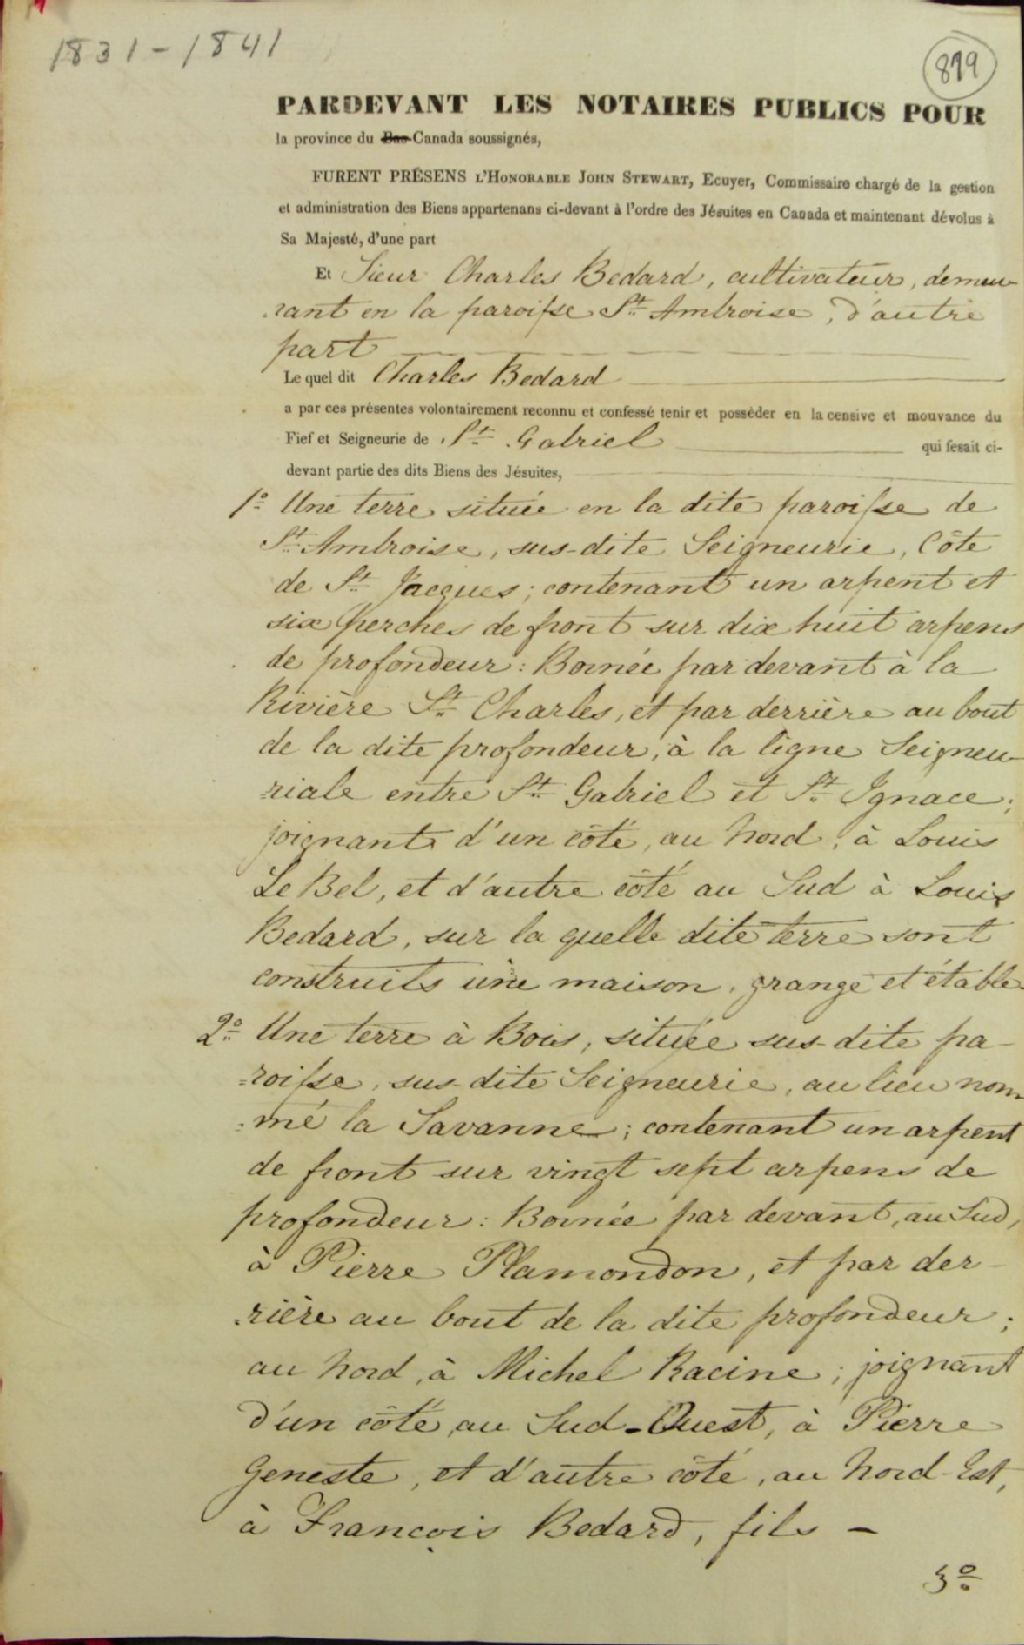 1831-1841
819
PARDEVANT LES NOTAIRES PUBLICS POUR
la province du Bas-Canada soussignés,
FURENT PRÉSENS L'HONORABLE JOHN STEWART, Ecuyer, Commissaire chargé de la gestion
et administration des Biens appartenans ci-devant à l'ordre des Jésuites en Canada et maintenant dévolus à
Sa Majesté, d'une part
Et Sieur Charles Bedard, cultivateur, demeu-
rant en la paroisse St. Ambroise, d'autre
part
Le quel dit Charles Bedard
a par ces présentes volontairement reconnu et confessé tenir et posséder en la censive et mouvance du
Fief et Seigneurie de St. Gabriel qui fesait ci-
devant partie des dits Biens des Jésuites,
1º Une terre située en la dite paroisse de
St. Ambroise, sus-dite Seigneurie, Côte
de St. Jacques; contenant un arpent et
six perches de front sur dix huit arpens
de profondeur: Bornée par devant à la
Rivière St. Charles, et par derrière au bout
de la dite profondeur, à la ligne Seigneu-
riale entre St. Gabriel et St. Ignace;
joignant d'un côté, au Nord, à Louis
Le Bel, et d'autre côté au Sud à Louis
Bedard, sur la quelle dite terre sont
construits une maison, grange et étable
2º Une terre à Bois, située sus-dite pa-
roisse, sus-dite Seigneurie, au lieu nom-
mé la Savanne; contenant un arpent
de front sur vingt sept arpens de
profondeur: Bornée par devant, au Sud,
à Pierre Plamondon, et par der-
rière au bout de la dite profondeur;
au Nord, à Michel Racine; joignant
d'un côté, au Sud-Ouest, à Pierre
Geneste, et d'autre côté, au Nord-Est,
à François Bedard, fils -
3º